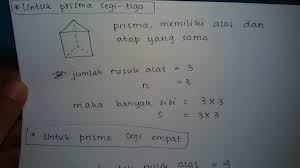 * Untuk prisma segi-tiga
prisma, memiliki alas dan
atap yang sama
jumlah rusuk alas = 3
n = 3
maka banyak sisi = 3 x 3
s = 3 x 3
* Untuk prisma segi empat
rusuk alas = 4